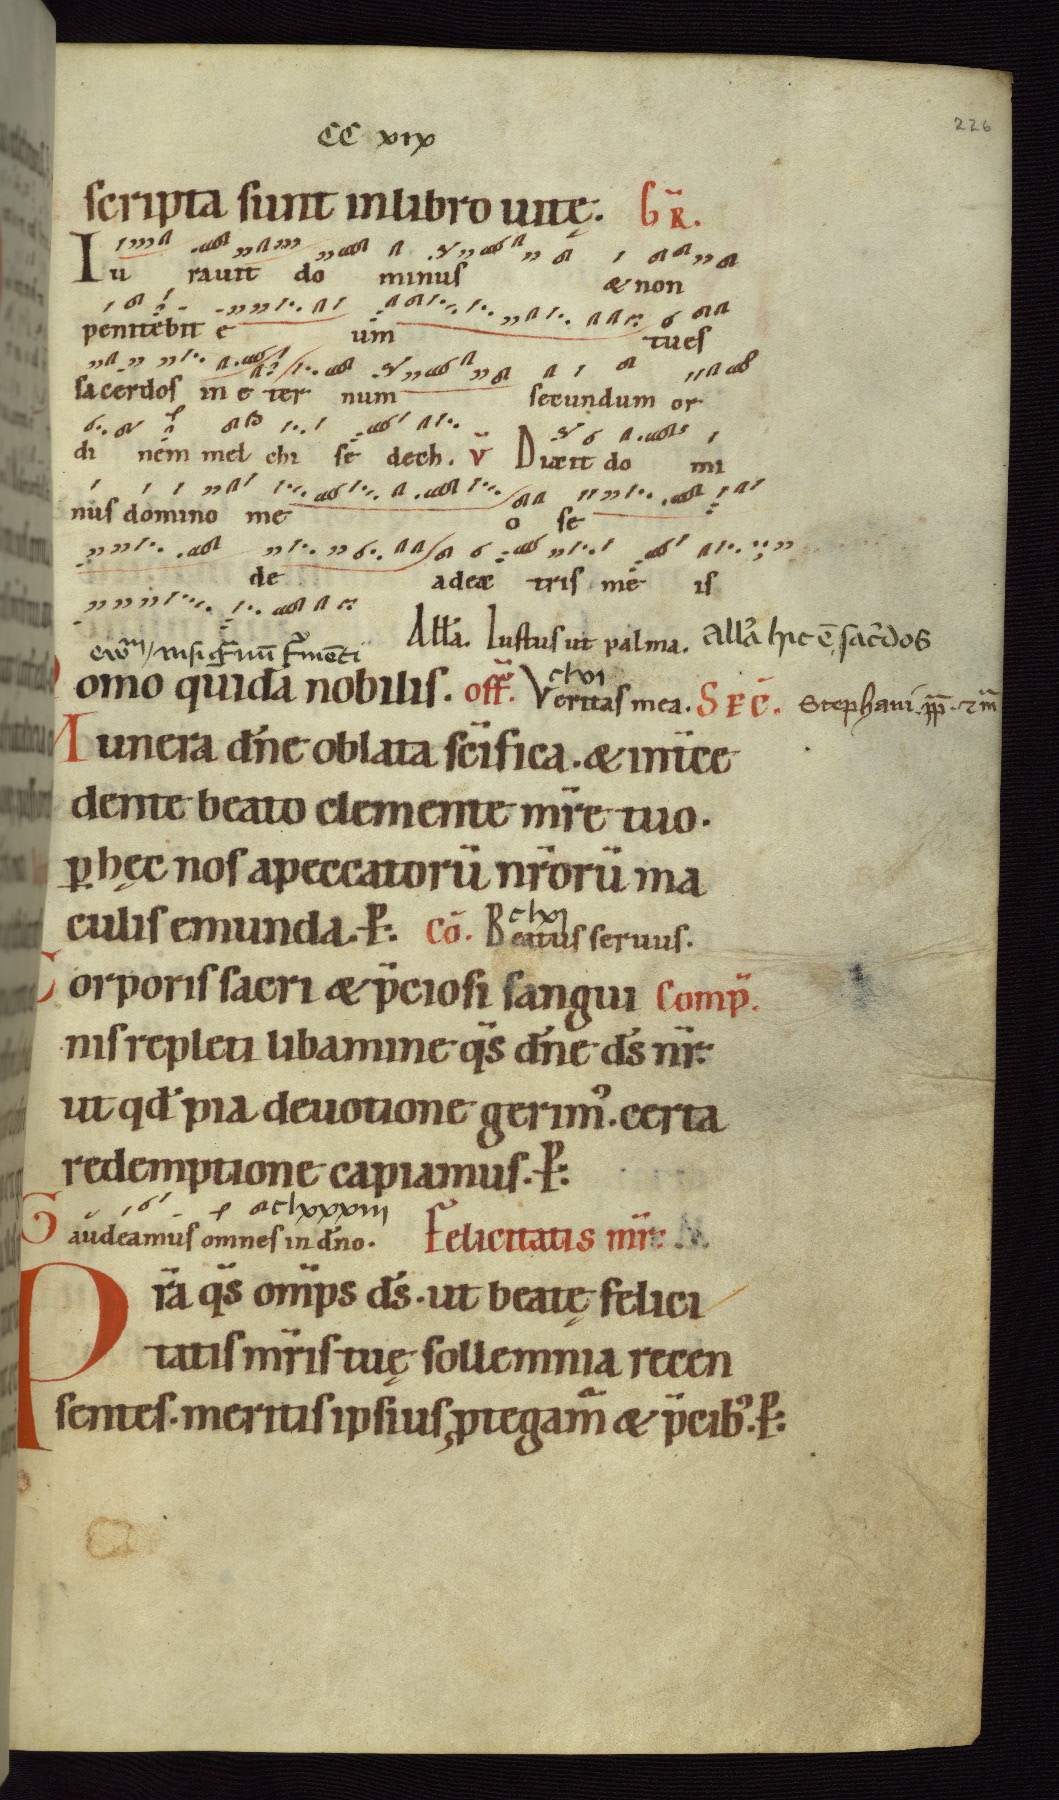 CC xix
226
scripta sunt in libro uitę. GR̄.
Iu rauit do minus & non
penitebit e um tu es
sacerdos in e ter num secundum or
di nem mel chi se dech. v̄ Dixit do mi
nus domino me o se
de a dex tris me is
All̄a. Iustus ut palma. All'a hic ē sac̄dos
omo quidā nobilis. off̄. Veritas mea. SEC̄. Stephani pp̄ · ⁊ m̄
Munera dn̄e oblata sc̄ifica. & int̄ce
dente beato clemente mr̄e tuo.
ꝑ hęc nos a peccatorū nr̄orū ma
culis emunda. P: Cō. Beatus seruus.
Corporis sacri & p̄ciosi sangui Comp̄.
nis repleti libamine qs̄ dn̄e ds̄ nr̄:
ut qd̄ pia deuotione gerim᾽. certa
redemptione capiamus. P:
clxxxiii
Gaudeamus omnes in dn̄o. Felicitatis mr̄:
Pr̄a qs̄ omp̄s ds̄. ut beatę felici
tatis mr̄is tuę sollemnia recen
sentes. meritis ipsius ꝓtegam̄ & p̄cib᾽. P: